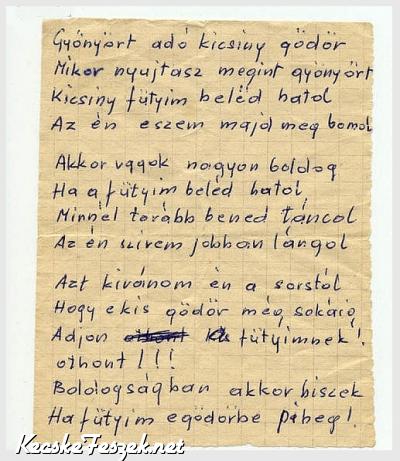 Gyönyört adó kicsiny gödör
Mikor nyujtasz megint gyönyört
Kicsiny fütyim beléd hatol
Az én eszem majd meg bomol
Akkor vagok nagyon boldog
Ha a fütyim beléd hatol
Minnél tovább bened táncol
Az én szivem jobban lángol
Azt kivánom én a sorstól
Hogy e kis gödör még sokáig
Adjon othont kis fütyimnek!
othont!!!
Boldogságban akkor hiszek
Ha fütyim e gödörbe piheg!
KecskeFeszek.net